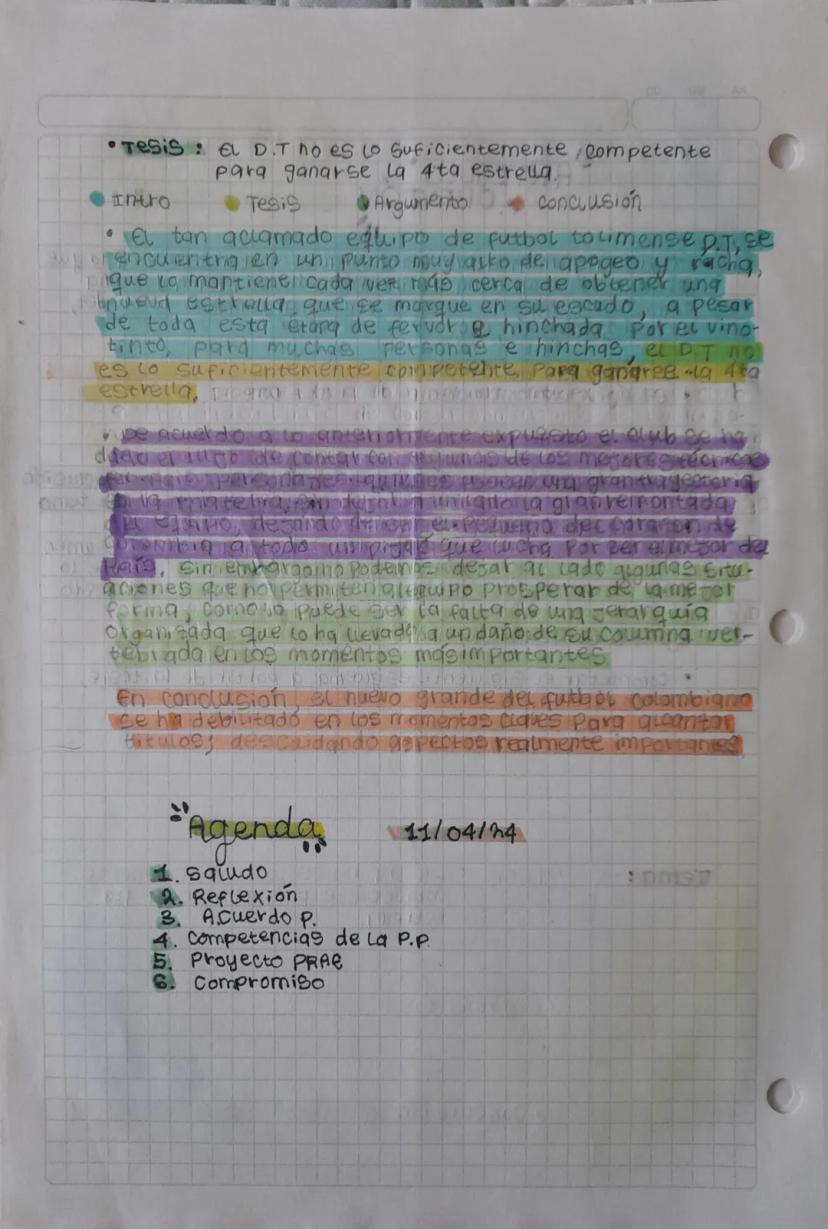 • Tesis: El D.T no es lo suficientemente competente
para ganarse la 4ta estrella.
Intro Tesis Argumento conclusión
• El tan aclamado equipo de futbol tolimense D.T, se
encuentra en un punto muy alto de apogeo y racha,
que lo mantiene cada vez más cerca de obtener una
nueva estrella que se marque en su escudo, a pesar
de toda esta etapa de fervor e hinchada por el vino-
tinto, para muchas personas e hinchas, el D.T no
es lo suficientemente competente para ganarse la 4ta
estrella.
• De acuerdo a lo anteriormente expuesto el club se ha
dado el lujo de contar con algunos de los mejores técnicos
una gran trayectoria
en la materia, la gran remontada
al equipo, dejando de ser el pequeño del corazón de
Colombia a todo un pijao que lucha por ser el mejor del
País, sin embargo no podemos dejar al lado algunas situ-
aciones que no permiten al equipo prosperar de la mejor
forma, como lo puede ser la falta de una jerarquía
organizada que lo ha llevado a un daño de su columna ver-
tebrada en los momentos más importantes
En conclusión, el nuevo grande del futbol colombiano
se ha debilitado en los momentos claves para alcanzar
titulos, descuidando aspectos realmente importantes
Agenda 11/04/24
1. Saludo
2. Reflexión
3. Acuerdo P.
4. Competencias de la P.P
5. Proyecto PRAE
6. Compromiso